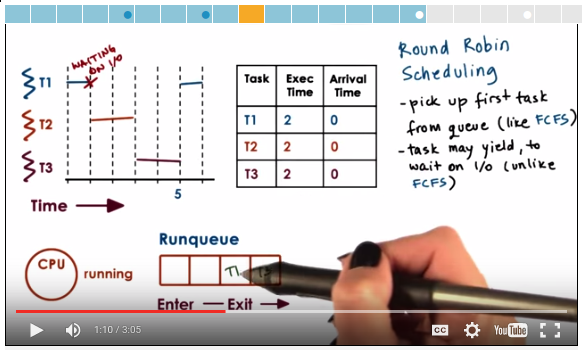 WAITING
ON I/O
T1
T2
T3
5
Time
Task Exec Time Arrival Time
T1 2 0
T2 2 0
T3 2 0
Round Robin
Scheduling
- pick up first task
from queue (like FCFS)
- task may yield, to
wait on I/O (unlike
FCFS)
CPU
running
Runqueue
T1
Enter — Exit
1:10 / 3:05
CC
YouTube